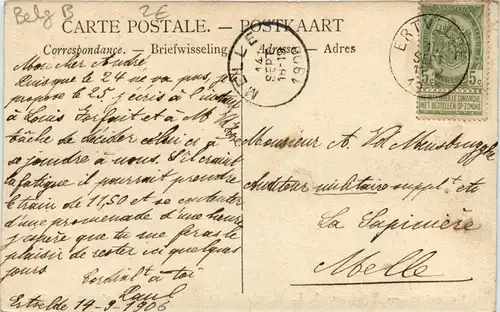 Belg B 2€
CARTE POSTALE. — POSTKAART
Correspondance. — Briefwisseling. Adresse — Adres
MELLE
14
SEPT
18-19
1906
ERTVELDE
5c 5c
NE PAS LIVRER LE DIMANCHE
NIET BESTELLEN OP ZONDAG
Mon cher André
Puisque le 24 ne va pas, je
propose le 25 j'écris à l'instant
à Louis Forfait et à M
tâche de décider à
se joindre à nous. S'il craint
la fatigue il pourrait prendre
le train de 11,50 et se contenter
d'une promenade d'une heure
j'espère que tu me feras le
plaisir de rester ici quelques
jours
Cordialt à toi
Paul
Ertvelde 14-9-1906
Monsieur A. Vd Mensbrugghe
Auditeur militaire supplt etc
La Sapinière
Melle